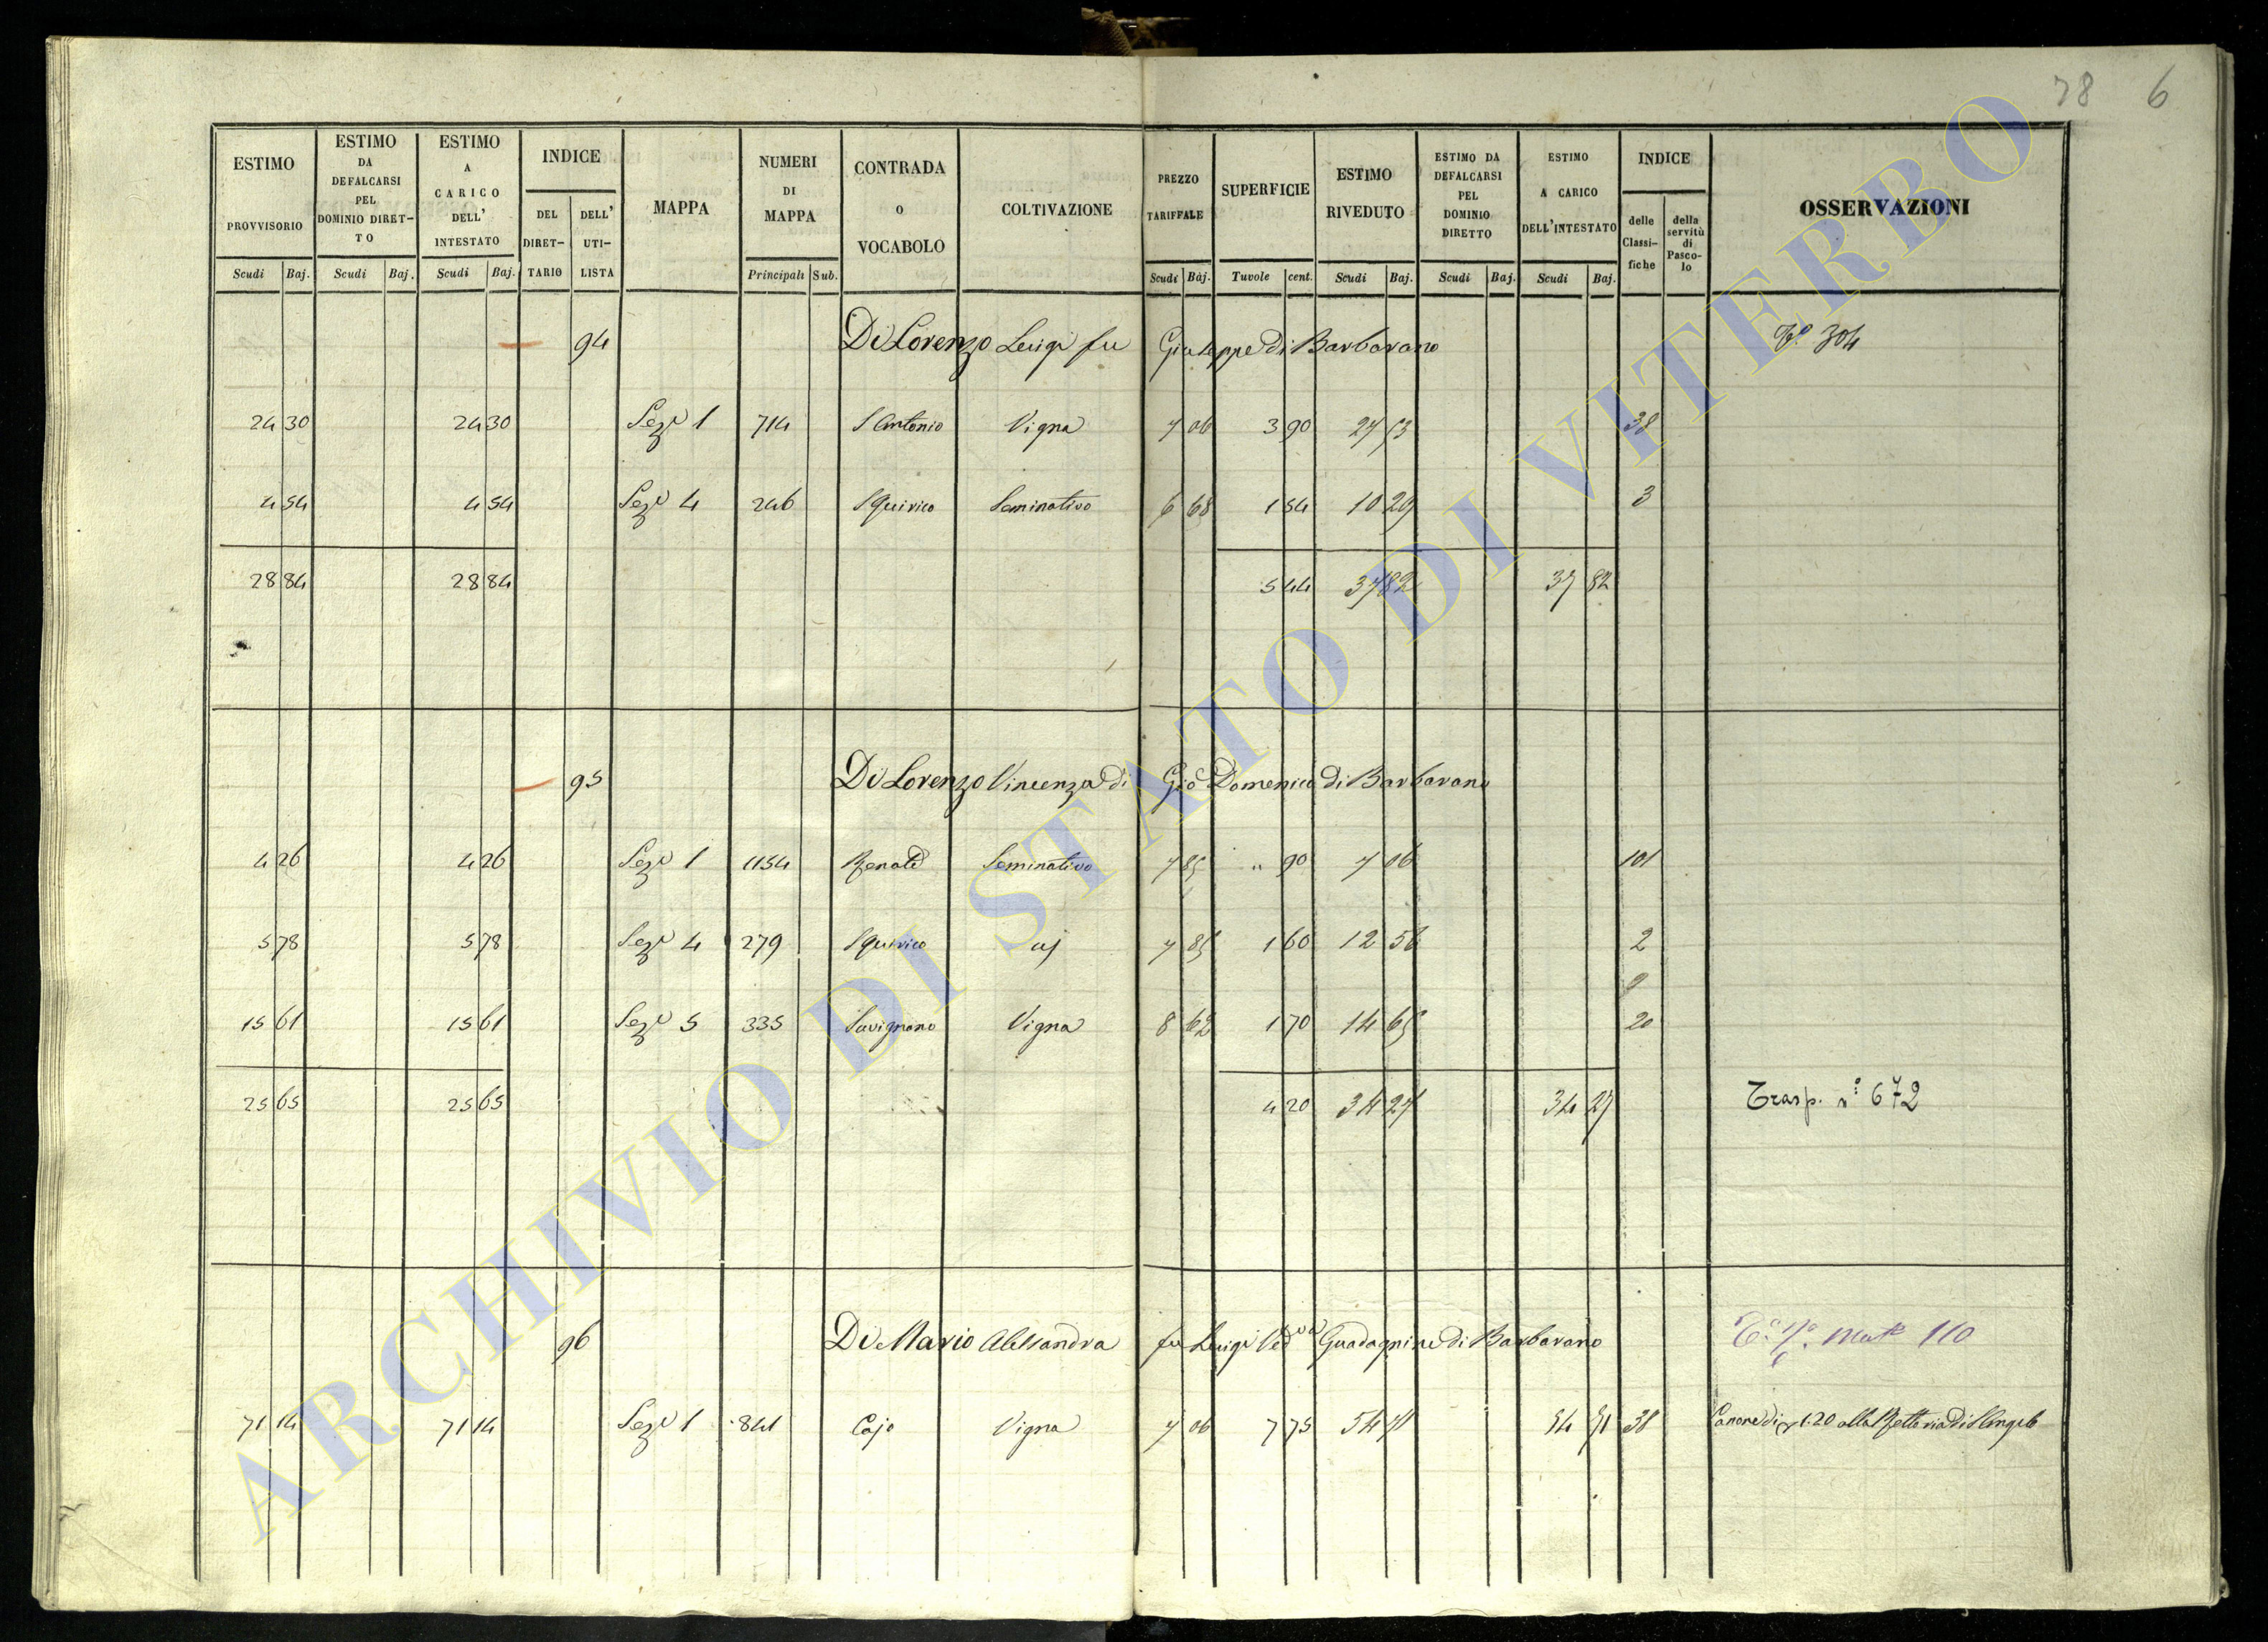 78 6
ESTIMO PROVVISORIO ESTIMO DA DEFALCARSI PEL DOMINIO DIRET-TO ESTIMO A CARICO DELL' INTESTATO INDICE DEL DIRET-TARIO DELL' UTI-LISTA MAPPA NUMERI DI MAPPA CONTRADA O VOCABOLO COLTIVAZIONE PREZZO TARIFFALE SUPERFICIE ESTIMO RIVEDUTO ESTIMO DA DEFALCARSI PEL DOMINIO DIRETTO ESTIMO A CARICO DELL'INTESTATO INDICE delle Classi-fiche della servitù di Pasco-lo OSSERVAZIONI
Scudi Baj. Scudi Baj. Scudi Baj. Principali Sub. Scudi Baj. Tavole cent. Scudi Baj. Scudi Baj. Scudi Baj.
94 Di Lorenzo Luigi fu Giuseppe di Barbarano 304
24 30 24 30 Seze 1 714 S Antonio Vigna 7 06 3 90 27 53 38
4 54 4 54 Seze 4 246 S Quirico Seminativo 6 68 1 54 10 29 3
28 84 28 84 5 44 37 82 37 82
95 Di Lorenzo Vincenza di Gio Domenico di Barbarano
4 26 4 26 Seze 1 1154 Seminativo 7 85 " 90 7 06 101
5 78 5 78 Seze 4 279 S Quirico 7 85 1 60 12 56 2
15 61 15 61 Seze 5 335 Savignano Vigna 8 62 1 70 14 65 20
25 65 25 65 4 20 34 27 34 27 Trasp. n° 672
96 Di Mario Alessandra fu Luigi Ved Guadagnini di Barbarano 110
71 14 71 14 Seze 1 841 Cajo Vigna 7 06 7 75 54 71 54 71 38 Canone di 1:20 alla di S Angelo
ARCHIVIO DI STATO DI VITERBO